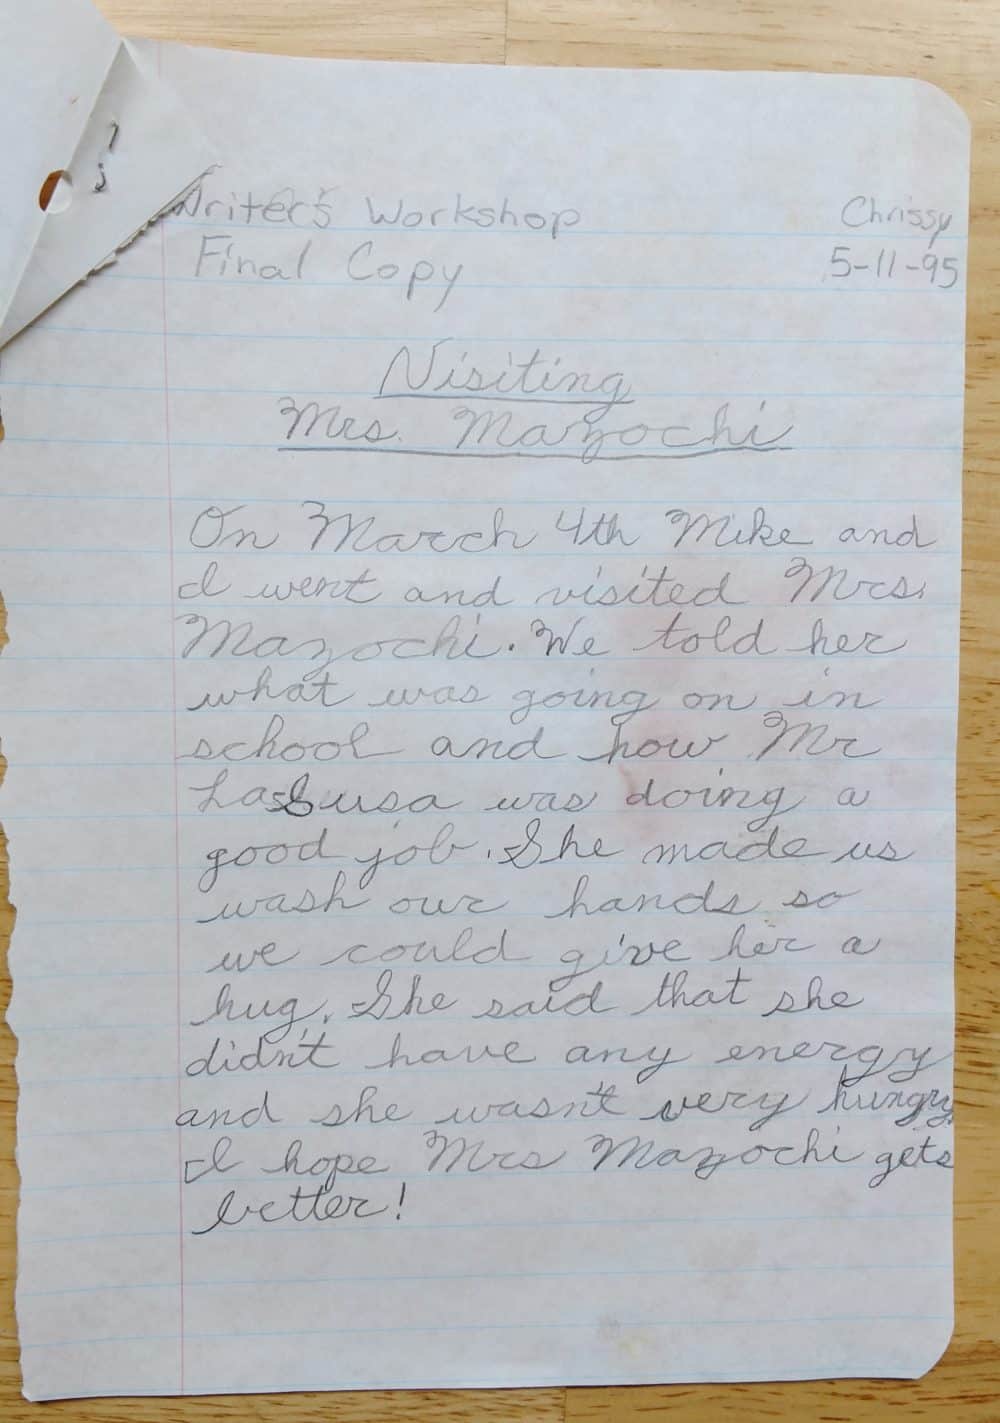 Writer's Workshop Chrissy
Final Copy 5-11-95
Visiting
Mrs. Mazochi
On March 4th Mike and
I went and visited Mrs.
Mazochi. We told her
what was going on in
school and how Mr
LaSusa was doing a
good job. She made us
wash our hands so
we could give her a
hug. She said that she
didn't have any energy
and she wasn't very hungry.
I hope Mrs Mazochi gets
better!